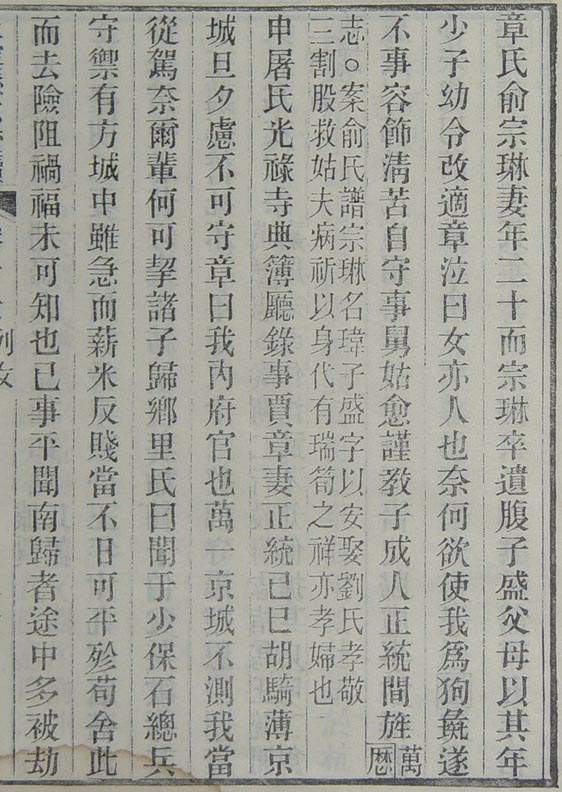 章氏俞宗琳妻年二十而宗琳卒遺腹子盛父母以其年
少子幼令改適章泣曰女亦人也奈何欲使我爲狗彘遂
不事容飾淸苦自守事舅姑愈謹教子成人正統間旌萬
曆
志○案俞氏譜宗琳名瑋子盛字以安娶劉氏孝敬
三割股救姑夫病祈以身代有瑞筍之祥亦孝婦也
申屠氏光祿寺典簿廳錄事賈章妻正統己巳胡騎薄京
城旦夕慮不可守章曰我內府官也萬一京城不測我當
從駕奈爾輩何可挈諸子歸鄉里氏曰聞于少保石總兵
守禦有方城中雖急而薪米反賤當不日可平殄苟舍此
而去險阻禍福未可知也已事平聞南歸者途中多被劫
列女